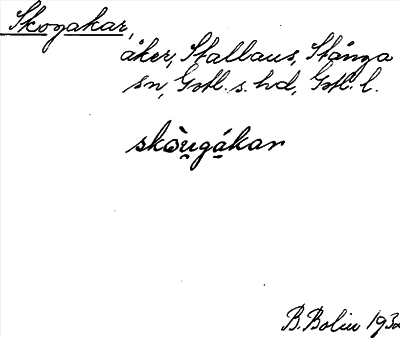 Skogakar,
åker, Stallaus, Stånga
sn, Gotl. s. hd, Gotl. l.
skòu̯gá̱kar
B. Bolin 1932